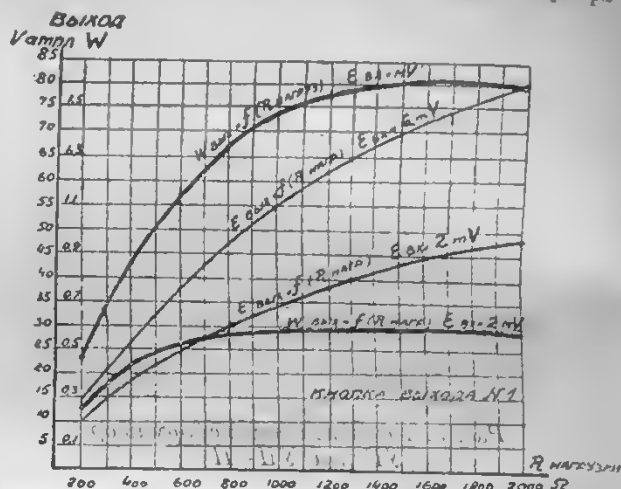 ВЫХОД
Vампл W
85
80
75 1.5
70
65 1.3
60
55 1.1
50
45 0.9
40
35 0.7
30
25 0.5
20
15 0.3
10
5 0.1
W вых = f (R нагруз) E вх = mV
E вых = f (R нагр) E вх = 6 mV
E вых = f (R нагр) E вх. 2 mV
W вых = f (R нагр) E вх = 2 mV
КНОПКА ВЫХОДА №1
R нагрузки
200 400 600 800 1000 1200 1400 1600 1800 2000 Ω